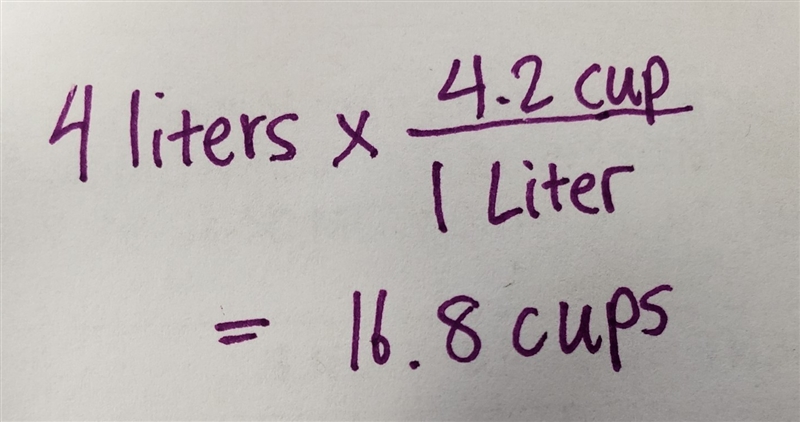 4 liters x 4.2 cup
1 Liter
= 16.8 cups